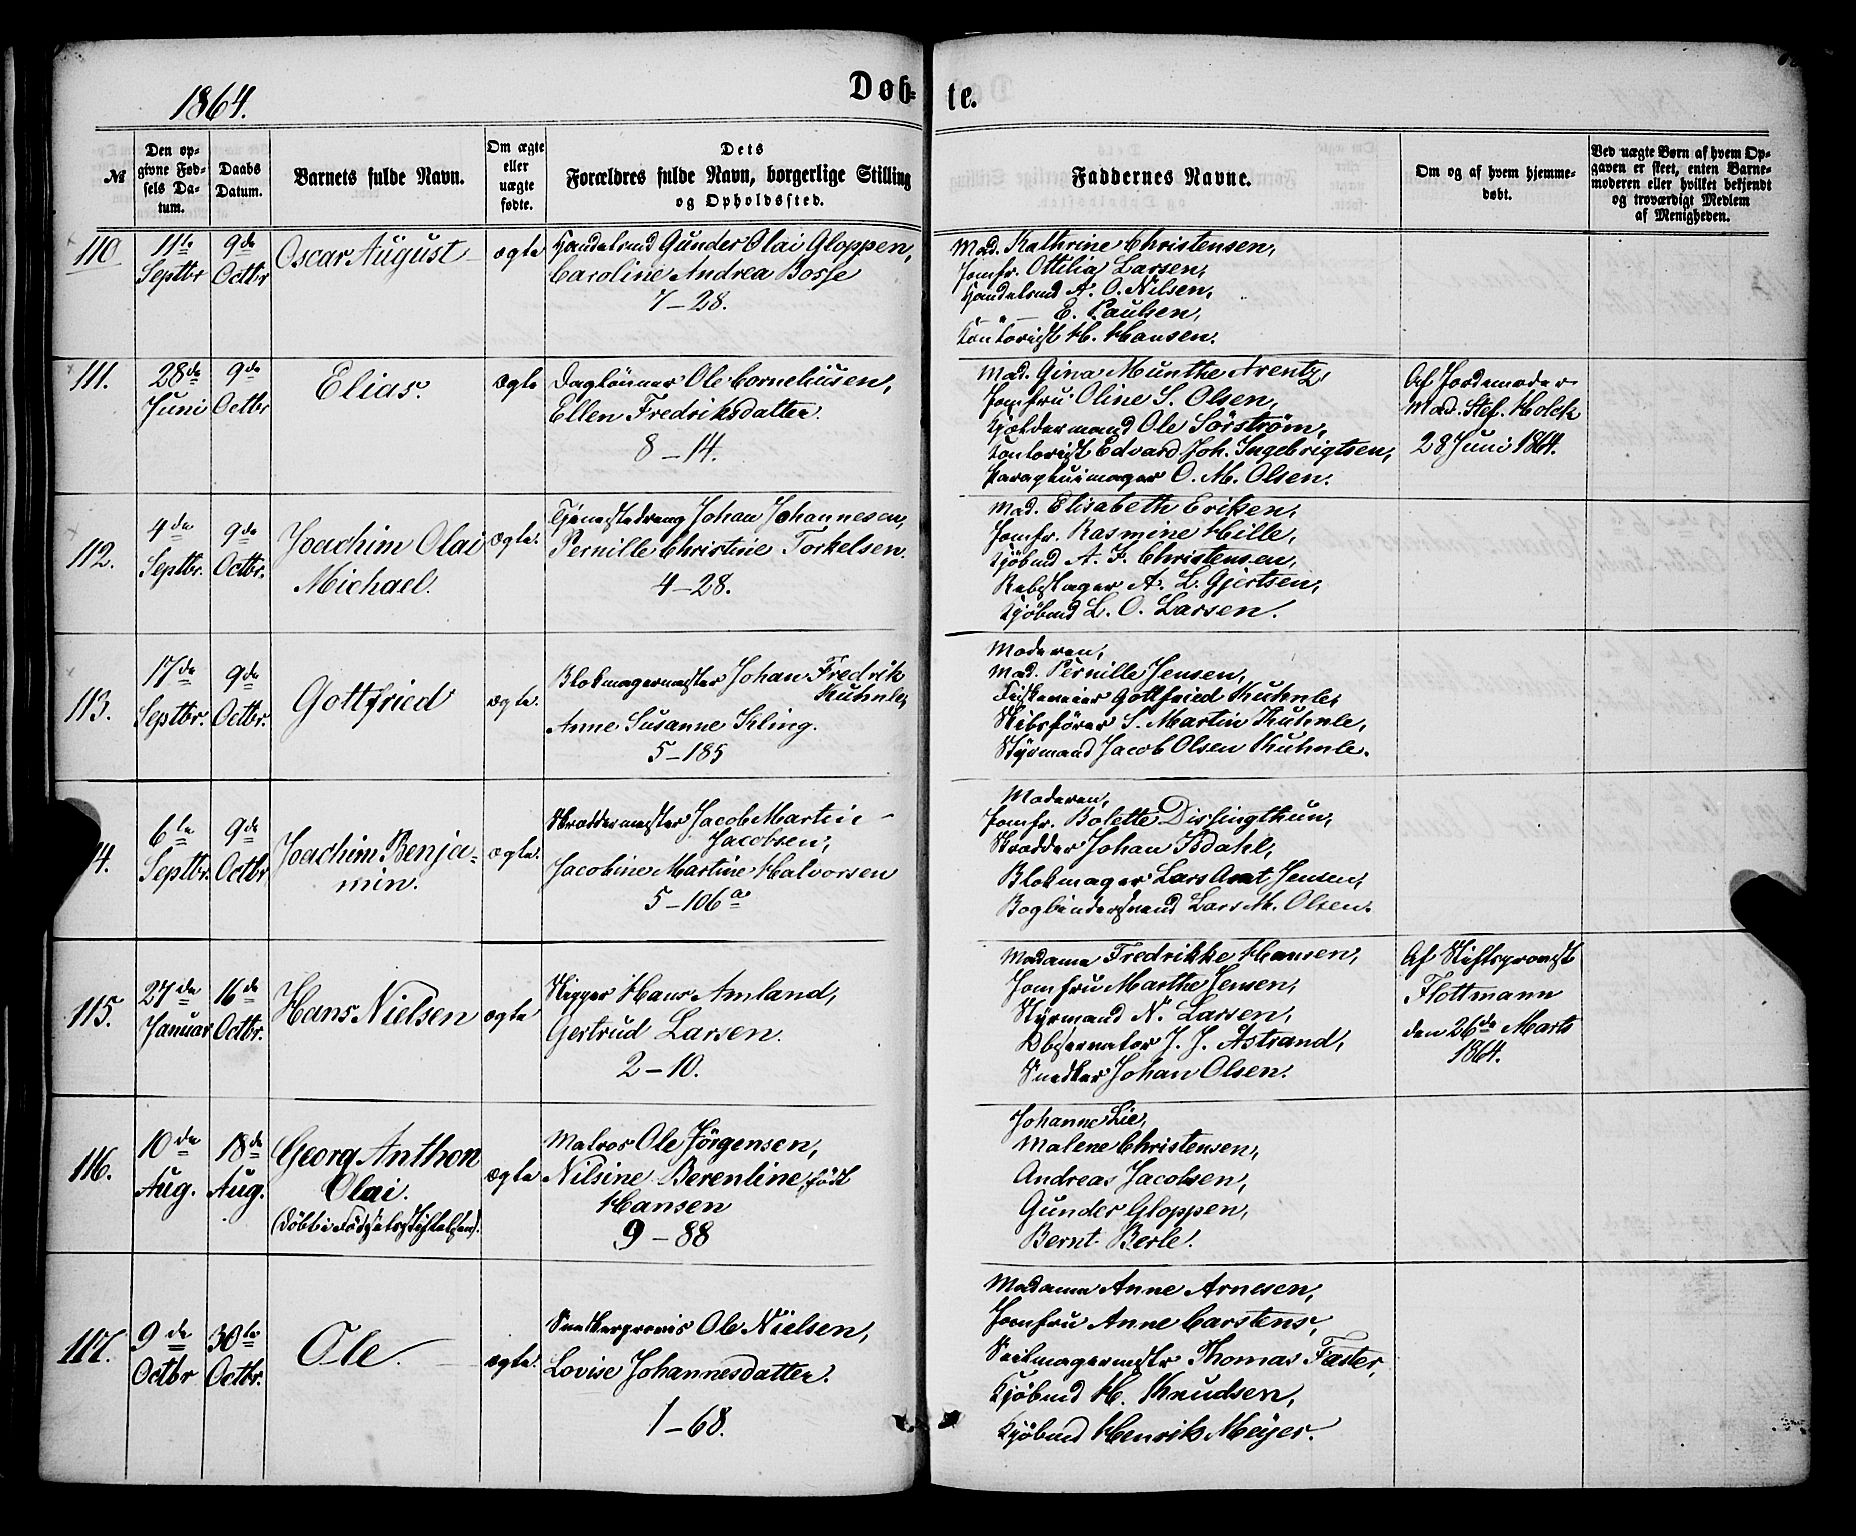 1864.
Døb- te.
№
Den op-
givne Fød-
sels Da-
tum.
Daabs
Datum.
Barnets fulde Navn.
Om ægte
eller
uægte
fødte.
Dets
Forældres fulde Navn, borgerlige Stilling
og Opholdssted.
Faddernes Navne.
Om og af hvem hjemme-
døbt.
Ved uægte Børn af hvem Op-
gaven er skeet, enten Barne-
moderen eller hvilket bekjendt
og troværdigt Medlem
af Menigheden.
110
11te
Septbr
9de
Octbr
Oscar August
ægte
Handelsmd Gunder Olai Gloppen,
Caroline Andrea Bosse
7-28.
Mad. Kathrine Christensen,
Jomfr. Ottilia Larsen,
Handelsmd A. O. Nilsen,
— " — E. Paulsen,
Kontorist H. Hansen.
111.
28de
Juni
9de
Octbr
Elias.
ægte
Daglönner Ole Corneliusen,
Ellen Fredriksdatter.
8-14.
Mad. Gina Munthe Arentz,
Jomfru Oline S. Olsen,
Kjeldermand Ole Sörström,
Kontorist Edvard Joh. Ingebrigtsen,
Parapluimager O. M. Olsen.
Af Jordemoder
Mad. Stef. Holck
28 Juni 1864.
112.
4de
Septbr.
9de
Octbr.
Joachim Olai
Michael.
ægte.
Tjenestedreng Johan Johannesen,
Pernille Christine Torkelsen.
4-28.
Mad. Elisabeth Eriksen,
Jomfr. Rasmine Hille,
Kjöbmd A. F. Christensen,
Rebslager A. L. Gjertsen,
Kjöbmd L. O. Larsen.
113.
17de
Septbr.
9de
Octbr.
Gottfried
ægte.
Blokmagermester Johan Fredrik
Kuhnle,
Anne Susanne Kling.
5-185
Moderen,
Mad. Pernille Jensen,
Fiskeveier Gottfried Kuhnle,
Skibsförer S. Martin Kuhnle,
Styrmand Jacob Olsen Kuhnle.
4.
6te
Septbr.
9de
Octbr
Joachim Benja-
min.
ægte.
Skræddermester Jacob Martin
Jacobsen,
Jacobine Martine Halvorsen
5-106a
Moderen,
Jomfr. Bolette Dissingthun,
Skrædder Johan Isdahl,
Blokmager Lars Arnt Jensen,
Bogbindersvend Lars M. Olsen.
115.
27de
Januar
16de
Octbr.
Hans Nielsen
ægte
Rigger Hans Amland,
Gertrud Larsen.
2-10.
Madama Fredrikke Hansen,
Jomfru Marthe Jensen,
Styrmand N. Larsen,
Observator J. J. Astrand,
Snedker Johan Olsen.
Af Stiftsprovst
Flottmann
den 26de Marts
1864.
116.
10de
Aug.
18de
Aug.
Georg Anthon
Olai.
(döbt i Födselsstiftelsen).
ægte
Matros Ole Jörgensen,
Nilsine Berentine, födt
Hansen
9-88
Johanne Lie,
Malene Christensen,
Andreas Jacobsen,
Gunder Gloppen,
Bernt Berle.
117.
9de
Octbr
30te
Octbr.
Ole.
ægte.
Snedkersvend Ole Nielsen,
Lovise Johannesdatter.
1-68.
Madama Anne Arnesen,
Jomfru Anne Carstens,
Seilmagermestr Thomas Faster,
Kjöbmd H. Knudsen,
Kjöbmd Henrik Meyer.